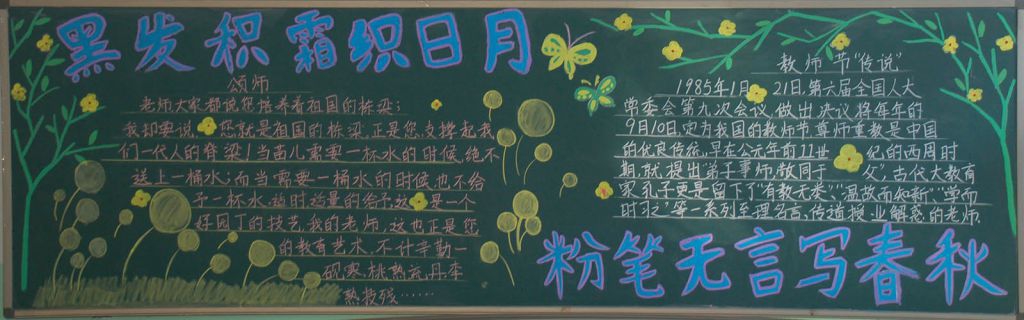 黑发积霜织日月
颂师
老师大家都说您培养着祖国的栋梁;
我却要说,您就是祖国的栋梁.正是您,支撑起我
们一代人的脊梁!当苗儿需要一杯水的时候,绝不
送上一桶水;而当需要一桶水的时候也不给
予一杯水.适时适量的给予,这是一个
好园丁的技艺.我的老师,这也正是您
的教育艺术.不计辛勤一
砚寒,桃熟流丹李
熟枝残……
教师节"传说"
1985年1月21日,第六届全国人大
常委会第九次会议,做出决议将每年的
9月10日,定为我国的教师节尊师重教是中国
的优良传统,早在公元年前11世纪的西周时
期,就提出弟子事师,敬同于父;古代大教育
家孔子更是留下了"有教无类"、"温故而知新"、"学而
时习之"等一系列至理名言、传道授业解惑的老师,
粉笔无言写春秋